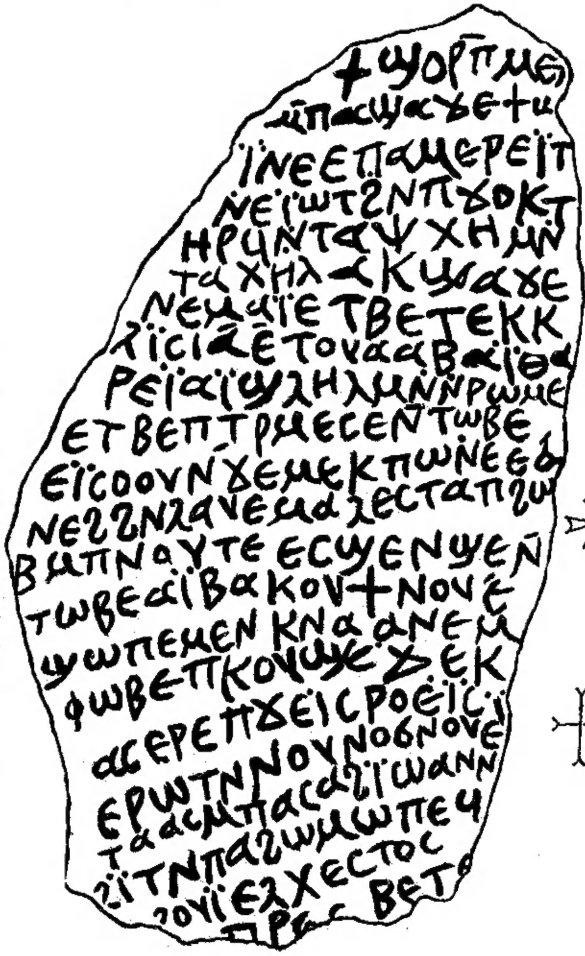 +ϣⲟⲣⲡ̄ⲙⲉⲛ
ⲙ̄ⲡⲁϣⲁϫⲉϯϣ
ⲓ̈ⲛⲉⲉⲡⲁⲙⲉⲣⲉⲓ̈ⲧ
ⲛⲉⲓ̈ⲱⲧϩⲛⲡϫⲟⲕⲧ
ⲏⲣϥⲛⲧⲁⲯⲭⲏⲙⲛ̄
ⲧⲁⲭⲏⲗⲁⲕϣⲁϫⲉ
ⲛⲉⲙⲁⲓ̈ⲉⲧⲃⲉⲧⲉⲕⲕ
ⲗⲓ̈ⲥⲓⲁⲉⲧⲟⲩⲁⲁⲃⲁⲓ̈ⲑⲁ
ⲣⲉⲓ̈ⲁⲓ̈ϣⲗⲏⲗⲙⲛ̄ⲛⲣⲱⲙⲉ
ⲉⲧⲃⲉⲡⲧⲣⲙⲉⲥⲉⲛ̄ⲧⲱⲃⲉ
ⲉⲓ̈ⲥⲟⲟⲩⲛϫⲉⲙⲉⲕⲡⲱⲛⲉⲉⲃ
ⲛⲉϩϩⲛⲗⲁⲩⲉⲙⲁⲗⲉⲥⲧⲁⲡϩⲱ
ⲃⲙⲡⲛⲁⲩⲧⲉⲉⲥϣⲉⲛϣⲉⲛ̄
ⲧⲱⲃⲉⲁⲓ̈ⲃⲁⲕⲟⲩϯⲛⲟⲩⲉ
ϣⲱⲡⲉⲙⲉⲛⲕⲛⲁⲁⲛⲉⲙ
ⲫⲱⲃⲉⲡⲕⲟⲩϣⲉϫⲉⲕ
ⲁⲥⲉⲣⲉⲡϫⲉⲓ̈ⲥⲣⲟⲉⲓ̈ⲥⲓ̈
ⲉⲣⲱⲧⲛⲛⲟⲩⲛⲟϭⲛⲟⲩⲉ
ⲧⲁⲁⲥⲙⲡⲁⲥⲁϩⲓ̈ⲱⲁⲛⲛ
ϩⲓ̈ⲧⲛⲡⲁϩⲱⲙⲱⲡⲉϥ
ϩⲟⲩⲓ̈ⲉⲗⲭⲉⲥⲧⲟⲥ
ⲡⲣⲉⲥⲃⲉⲧⲉ